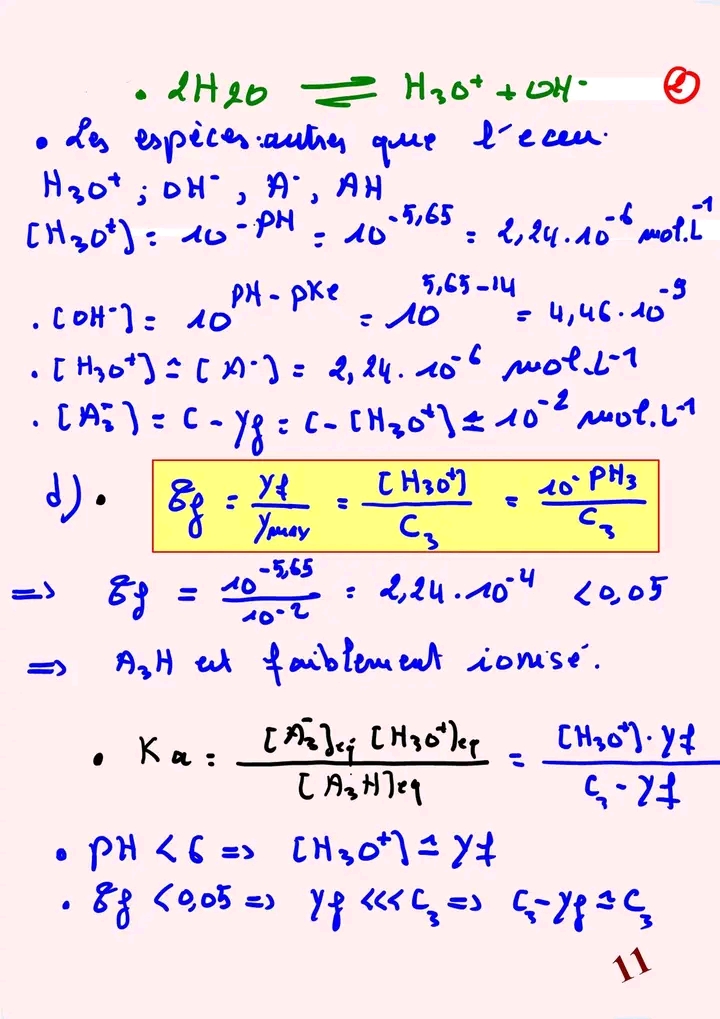 • 2H2O ⇌ H3O⁺ + OH⁻ ②
• Les espèces autres que l'eau.
H3O⁺ ; OH⁻, A⁻, AH
[H3O⁺] = 10^-PH = 10^-5,65 = 2,24.10^-6 mol.L^-1
• [OH⁻] = 10^PH-pKe = 10^5,65-14 = 4,46.10^-9
• [H3O⁺] ≃ [A⁻] = 2,24.10^-6 mol.L-1
• [A3⁻] = C - yf = C - [H3O⁺] ≃ 10^-2 mol.L-1
d) • τf = yf/ymax = [H3O⁺]/C3 = 10^-PH3/C3
=> τf = 10^-5,65/10^-2 = 2,24.10^-4 < 0,05
=> A3H est faiblement ionisé.
• Ka = [A3⁻]eq [H3O⁺]eq/[A3H]eq = [H3O⁺].yf/C3 - yf
• PH < 6 => [H3O⁺] ≃ yf
• τf < 0,05 => yf <<< C3 => C3 - yf ≃ C3
11